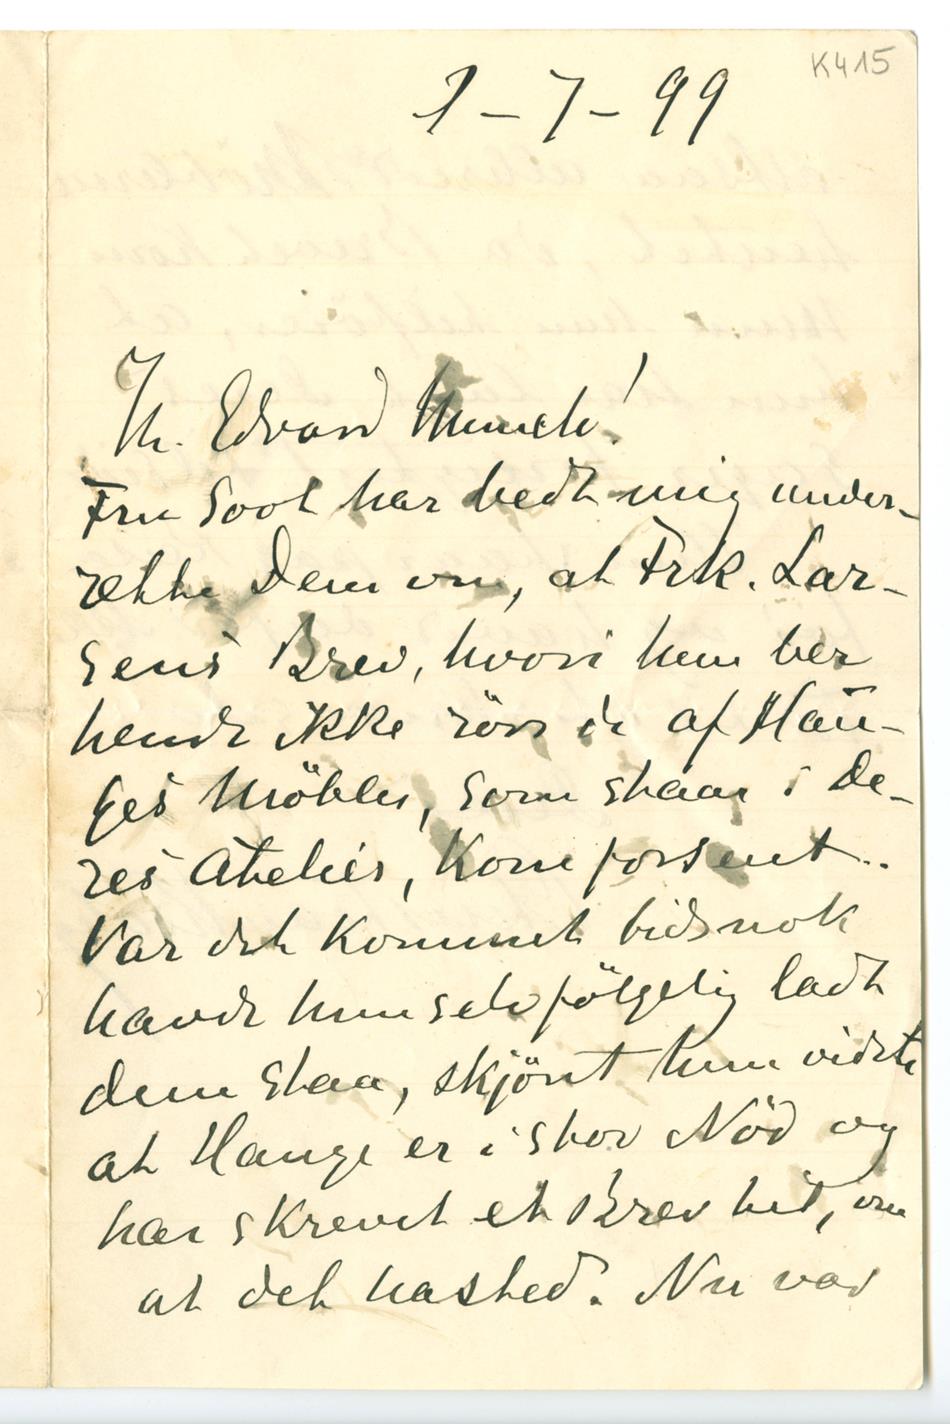 K415
1-7-99
Hr. Edvard Munch!
Fru Soot har bedt mig under-
rette Dem om, at Frk. Lar-
sens Brev, hvori hun ber
hende ikke röre de af Hau-
ges Möbler, som staar i De-
res Atelier, kom forsent..
Var det kommet tidsnok
havde hun selvfölgelig ladt
dem staa, skjönt hun vidste
at Hauge er i stor Nöd og
har skrevet et Brev hit, om
at det hasted. Nu var